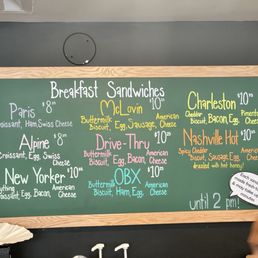 Breakfast Sandwiches
Paris $8
Croissant, Ham, Swiss Cheese
Alpine $8
Croissant, Egg, Swiss
Cheese
New Yorker $10
Everything American
Croissant, Egg, Bacon, Cheese
McLovin $10
Buttermilk American
Biscuit, Egg, Sausage, Cheese
Drive-Thru $10
Buttermilk American
Biscuit, Egg, Bacon, Cheese
OBX $10
Buttermilk American
Biscuit, Ham, Egg, Cheese
Charleston $10
Cheddar Pimento
Biscuit, Bacon, Egg, Cheese
Nashville Hot $10
Spicy Cheddar American
Biscuit, Sausage, Egg, Cheese
drizzled with hot honey!
until 2 pm!